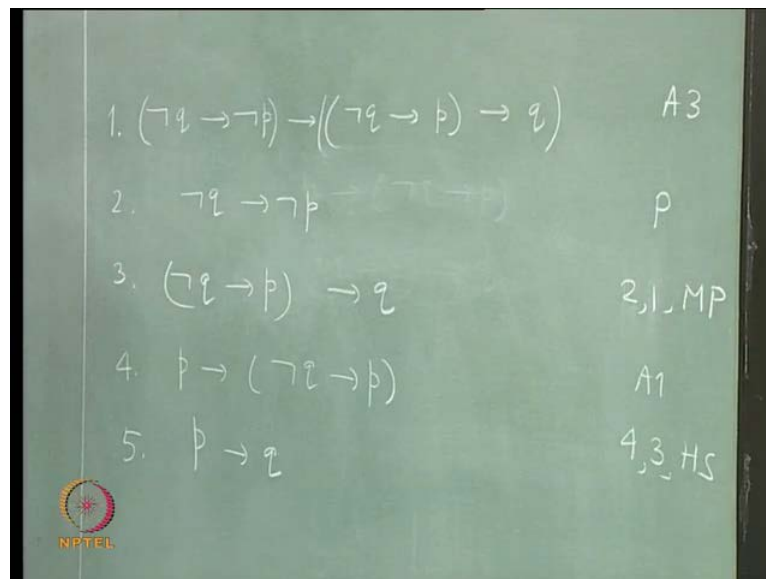 1. (¬q → ¬p) → ((¬q → p) → q) A3
2. ¬q → ¬p P
3. (¬q → p) → q 2,1, MP
4. p → (¬q → p) A1
5. p → q 4,3, HS
NPTEL